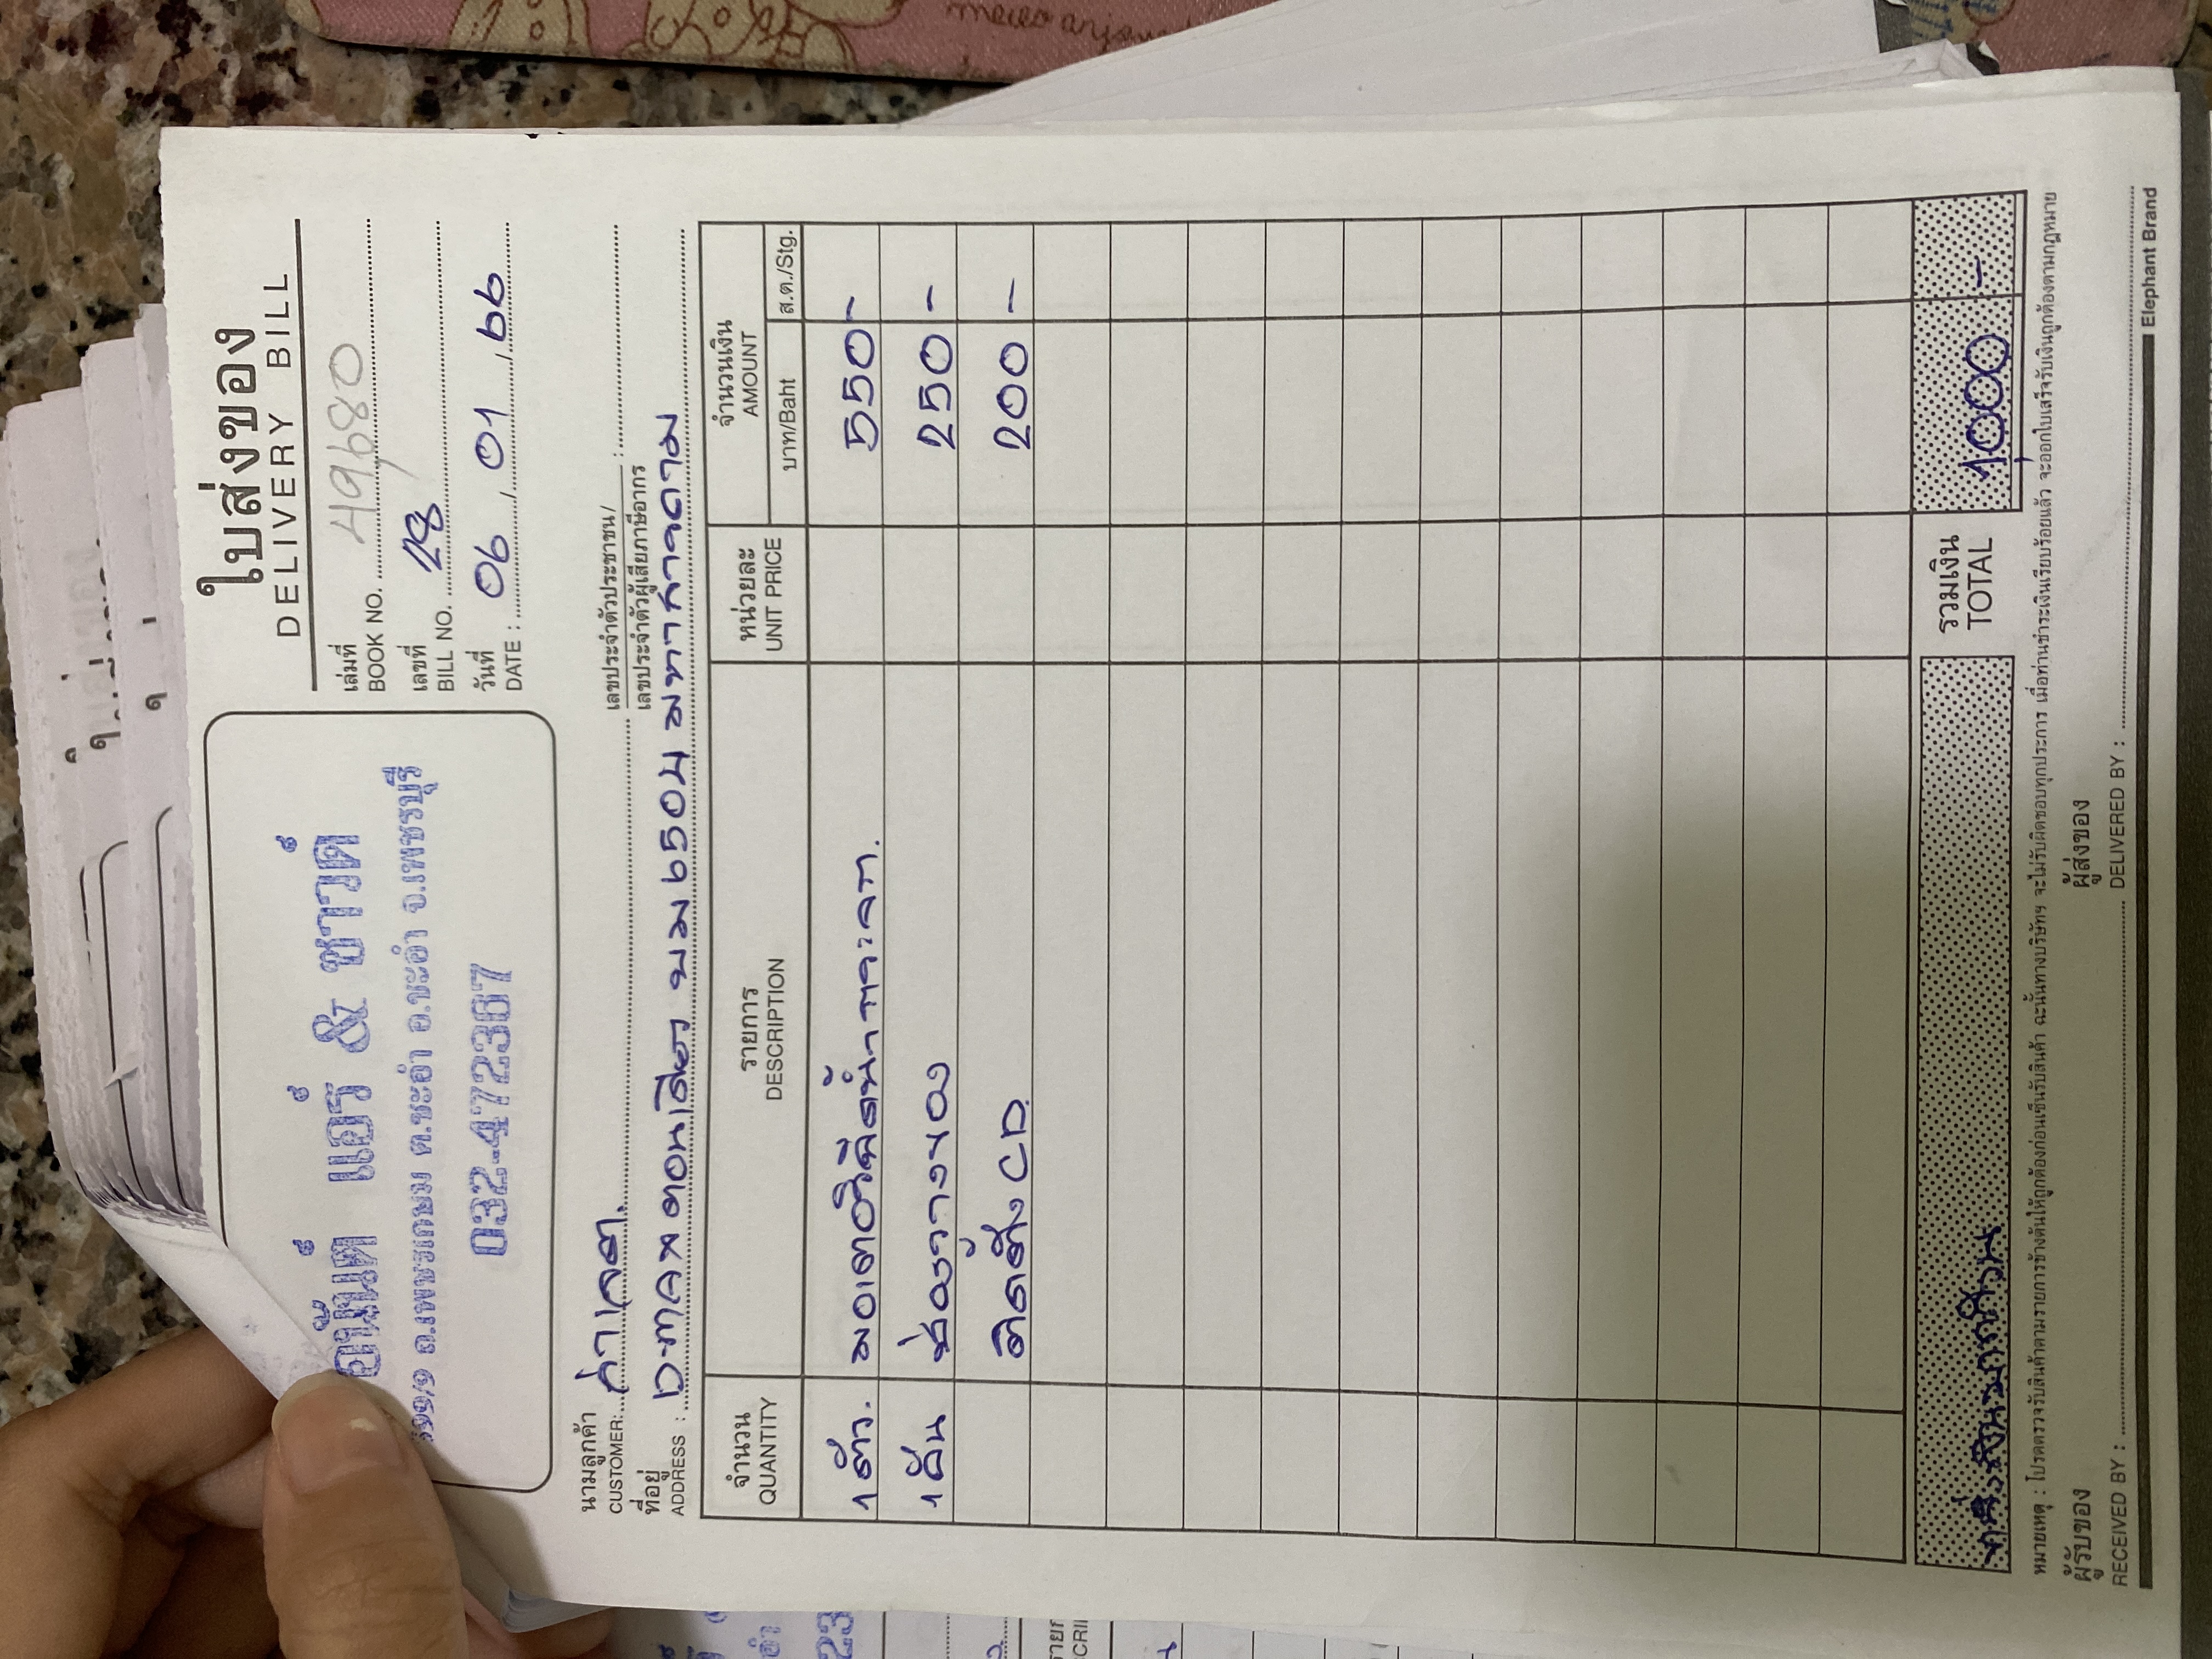 ใบส่งของ
DELIVERY BILL
อนันต์ แอร์ & ซาวด์
อ.เพชรเกษม ต.ชะอำ อ.ชะอำ จ.เพชรบุรี
032-472387
เล่มที่
BOOK NO. 49680
เลขที่
BILL NO. 28
วันที่
DATE : 06 , 01 , 66
นามลูกค้า
CUSTOMER:
เลขประจำตัวประชาชน/
เลขประจำตัวผู้เสียภาษีอากร :
ที่อยู่
ADDRESS : D-max ตอนเดียว บม 6504 มหาสารคาม
จำนวน รายการ หน่วยละ จำนวนเงิน
QUANTITY DESCRIPTION UNIT PRICE AMOUNT
บาท/Baht ส.ต./Stg.
1 ตัว. มอเตอร์ฉีดน้ำกระจก. 550 -
1 อัน ช่องวางของ 250 -
ติดตั้ง CD 200 -
หนึ่งพันบาทถ้วน รวมเงิน TOTAL 1,000 -
หมายเหตุ : โปรดตรวจรับสินค้าตามรายการข้างต้นให้ถูกต้องก่อนเซ็นรับสินค้า ฉะนั้นทางบริษัทฯ จะไม่รับผิดชอบทุกประการ เมื่อท่านชำระเงินเรียบร้อยแล้ว จะออกใบเสร็จรับเงินถูกต้องตามกฎหมาย
ผู้รับของ ผู้ส่งของ
RECEIVED BY : DELIVERED BY :
Elephant Brand